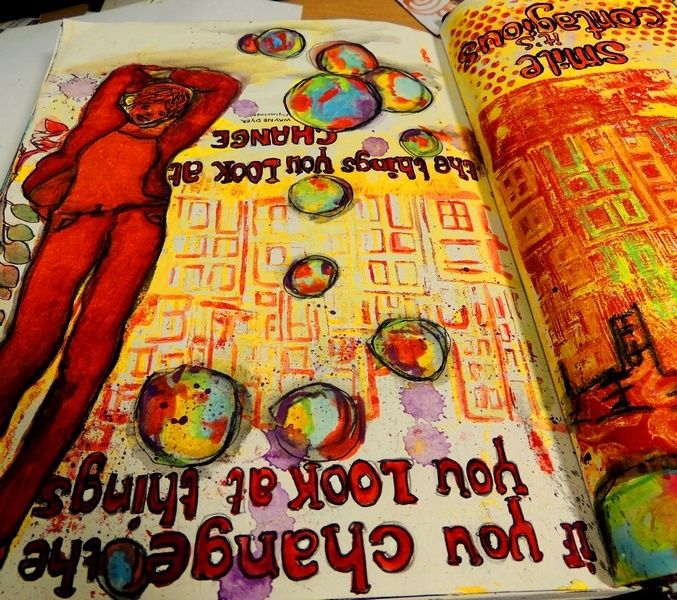 if you change the
you LOOK at things
the things you LOOK at
CHANGE
WAYNE DYER
smile
it's
contagious